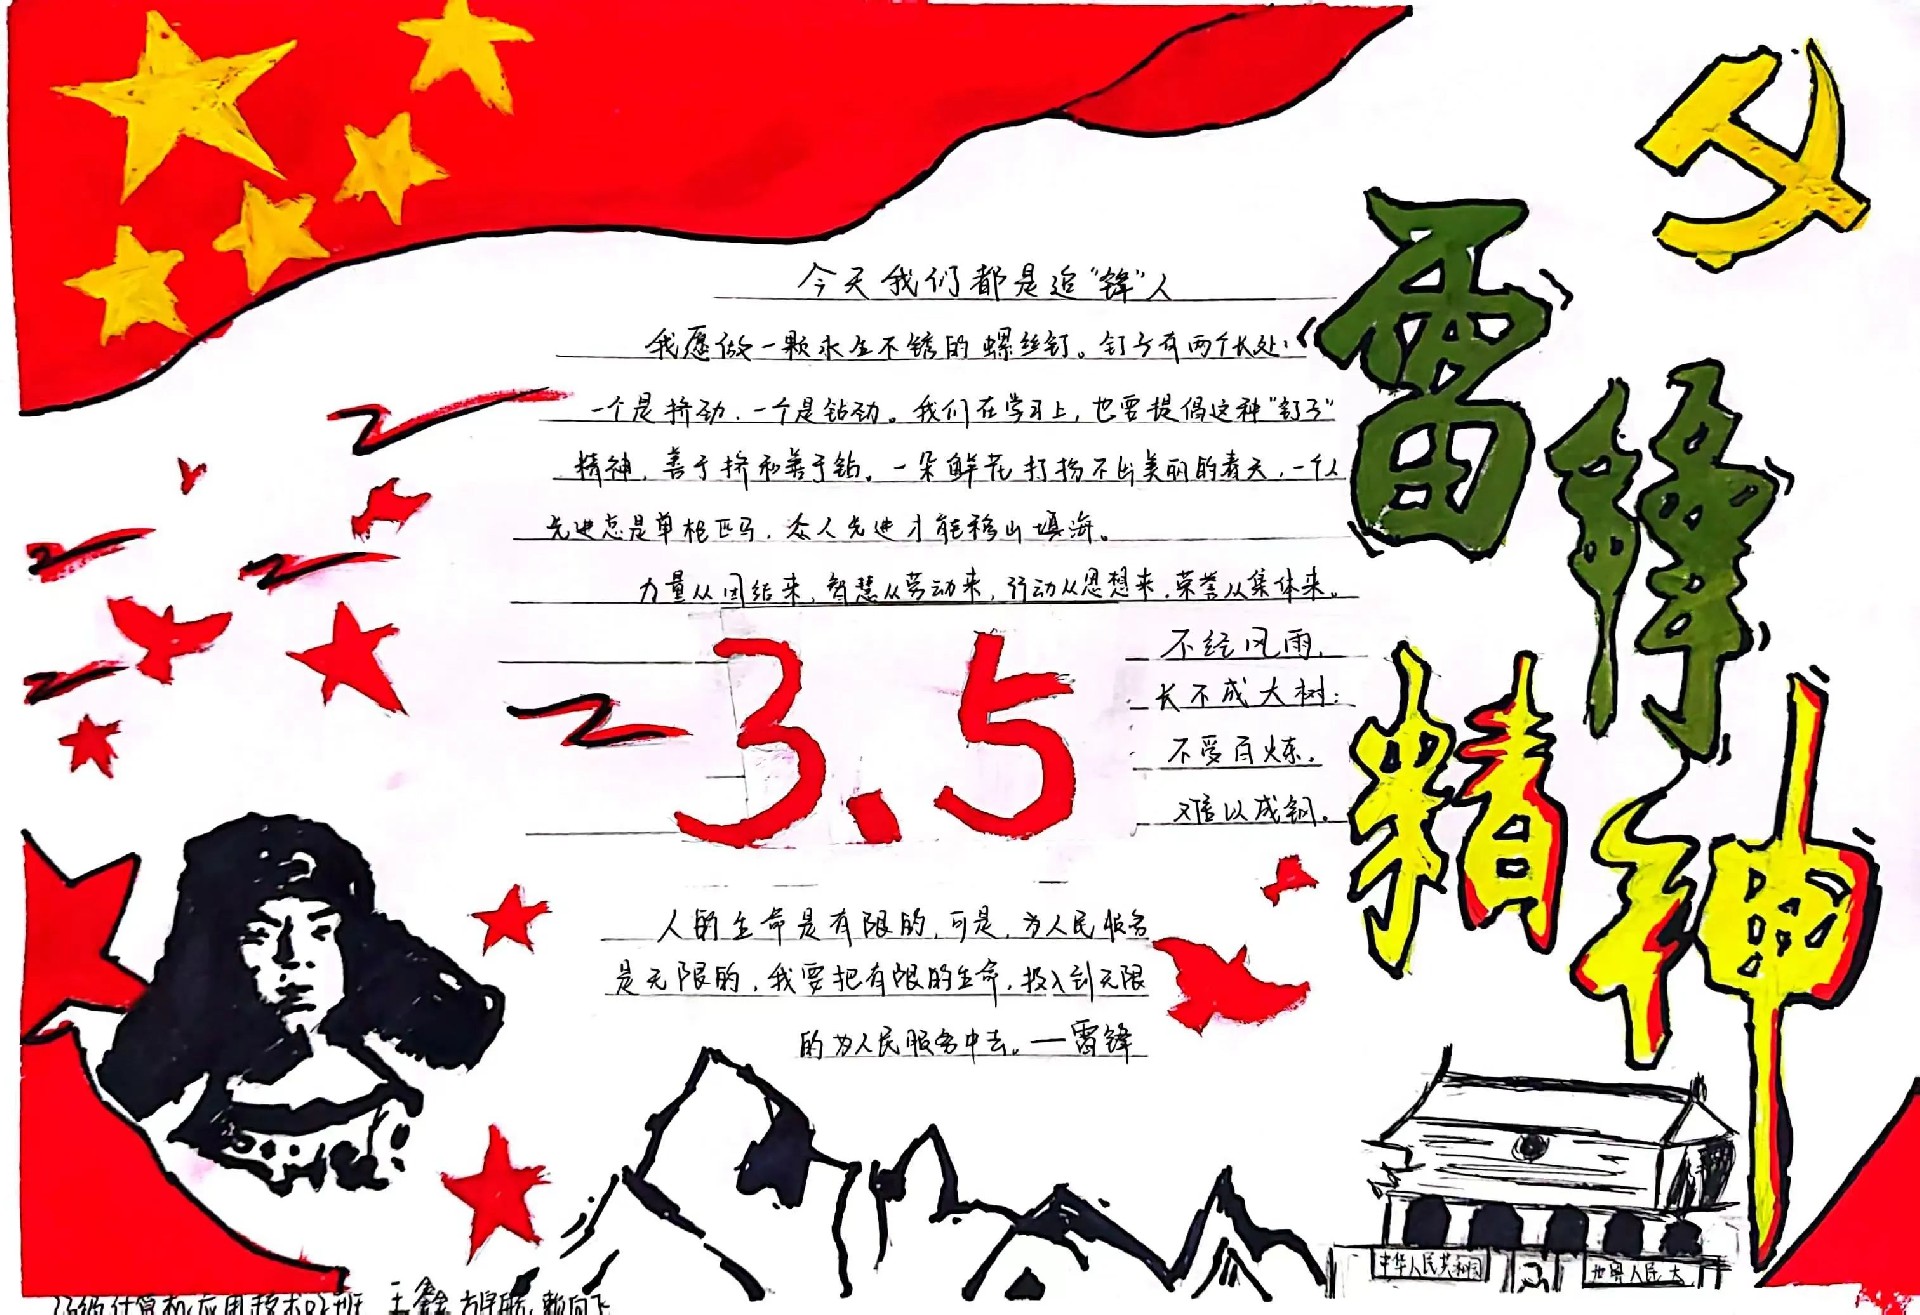 今天我们都是追“锋”人
我愿做一颗永生不锈的螺丝钉。钉子有两个长处：
一个是挤劲，一个是钻劲。我们在学习上，也要提倡这种“钉子”
精神，善于挤和善于钻。一朵鲜花打扮不出美丽的春天，一个人
先进总是单枪匹马，众人先进才能移山填海。
力量从团结来，智慧从劳动来，行动从思想来，荣誉从集体来。
不经风雨，
长不成大树；
不受百炼，
难以成钢。
3.5
人的生命是有限的，可是，为人民服务
是无限的，我要把有限的生命，投入到无限
的为人民服务中去。—雷锋
雷锋
精神
中华人民共和国
世界人民大
计算机应用技术 班 王鑫